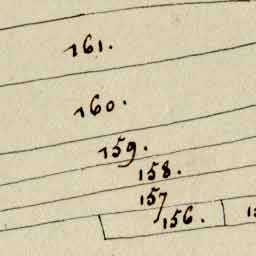 161.
160.
159.
158.
157
156.